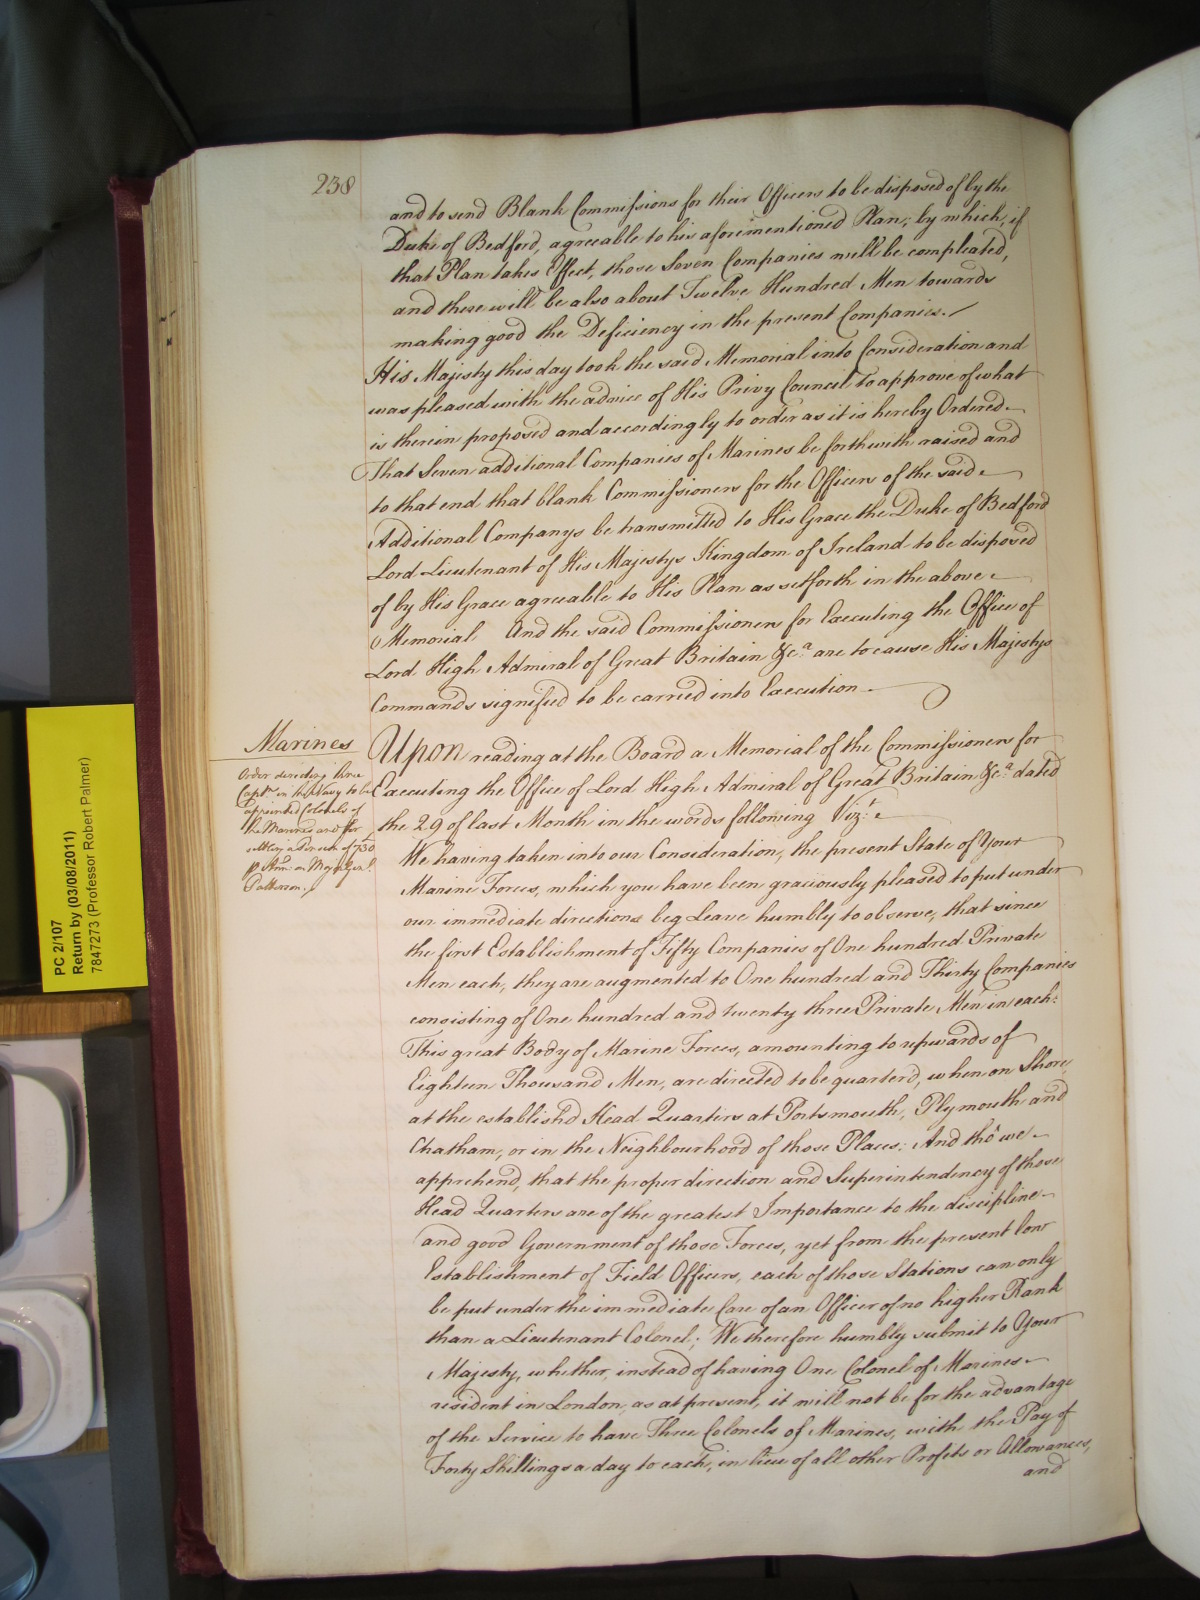 238
and to send Blank Commissions for their Officers to be disposed of by the
Duke of Bedford, agreeable to his aforementioned Plan; by which, if
that Plan takes Effect, those Seven Companies will be compleated,
and there will be also about Twelve Hundred Men towards
making good the Deficiency in the present Companies. /
His Majesty this day took the said Memorial into Consideration and
was pleased with the advice of His Privy Council To approve of what
is therein proposed and accordingly to order as it is hereby Ordered
That Seven additional Companies of Marines be forthwith raised and
to that end that blank Commissioners for the Officers of the said
Additional Companys be transmitted to His Grace the Duke of Bedford
Lord Lieutenant of His Majestys Kingdom of Ireland to be disposed
of by His Grace agreeable to His Plan as setforth in the above
Memorial And the said Commissioners for Executing the Office of
Lord High Admiral of Great Britain &ca. are to cause His Majestys
Commands signified to be carried into Execution
Marines
Order directing three
Captns in the Navy to be
appointed Colonels of
the Marines and for
settling a Pension of 730
p Ann. on Major Genl.
Patterson. /
Upon reading at the Board a Memorial of the Commissioners for
Executing the Office of Lord High Admiral of Great Britain &ca. dated
the 29 of last Month in the words following Vizt.
We having taken into our Consideration, the present State of Your
Marine Forces, which you have been graciously pleased to put under
our immediate directions beg Leave humbly to observe, that since
the first Establishment of Fifty Companies of One hundred Private
Men each, they are augmented to One hundred and Thirty Companies
consisting of One hundred and twenty three Private Men in each:
This great Body of Marine Forces, amounting to upwards of
Eighteen Thousand Men, are directed to be quarterd, when on Shore,
at the establish'd Head Quarters at Portsmouth, Plymouth and
Chatham, or in the Neighbourhood of those Places: And tho' we
apprehend, that the proper direction and Superintendency of those
Head Quarters are of the greatest Importance to the discipline
and good Government of those Forces, yet from the present low
Establishment of Field Officers, each of those Stations can only
be put under the immediate Care of an Officer of no higher Rank
than a Lieutenant Colonel; We therefore humbly submit to Your
Majesty, whether, instead of having One Colonel of Marines
resident in London, as at present, it will not be for the advantage
of the Service to have Three Colonels of Marines, with the Pay of
Forty Shillings a day to each, in lieu of all other Profits or Allowances,
and
PC 2/107
Return by (03/08/2011)
7847273 (Professor Robert Palmer)